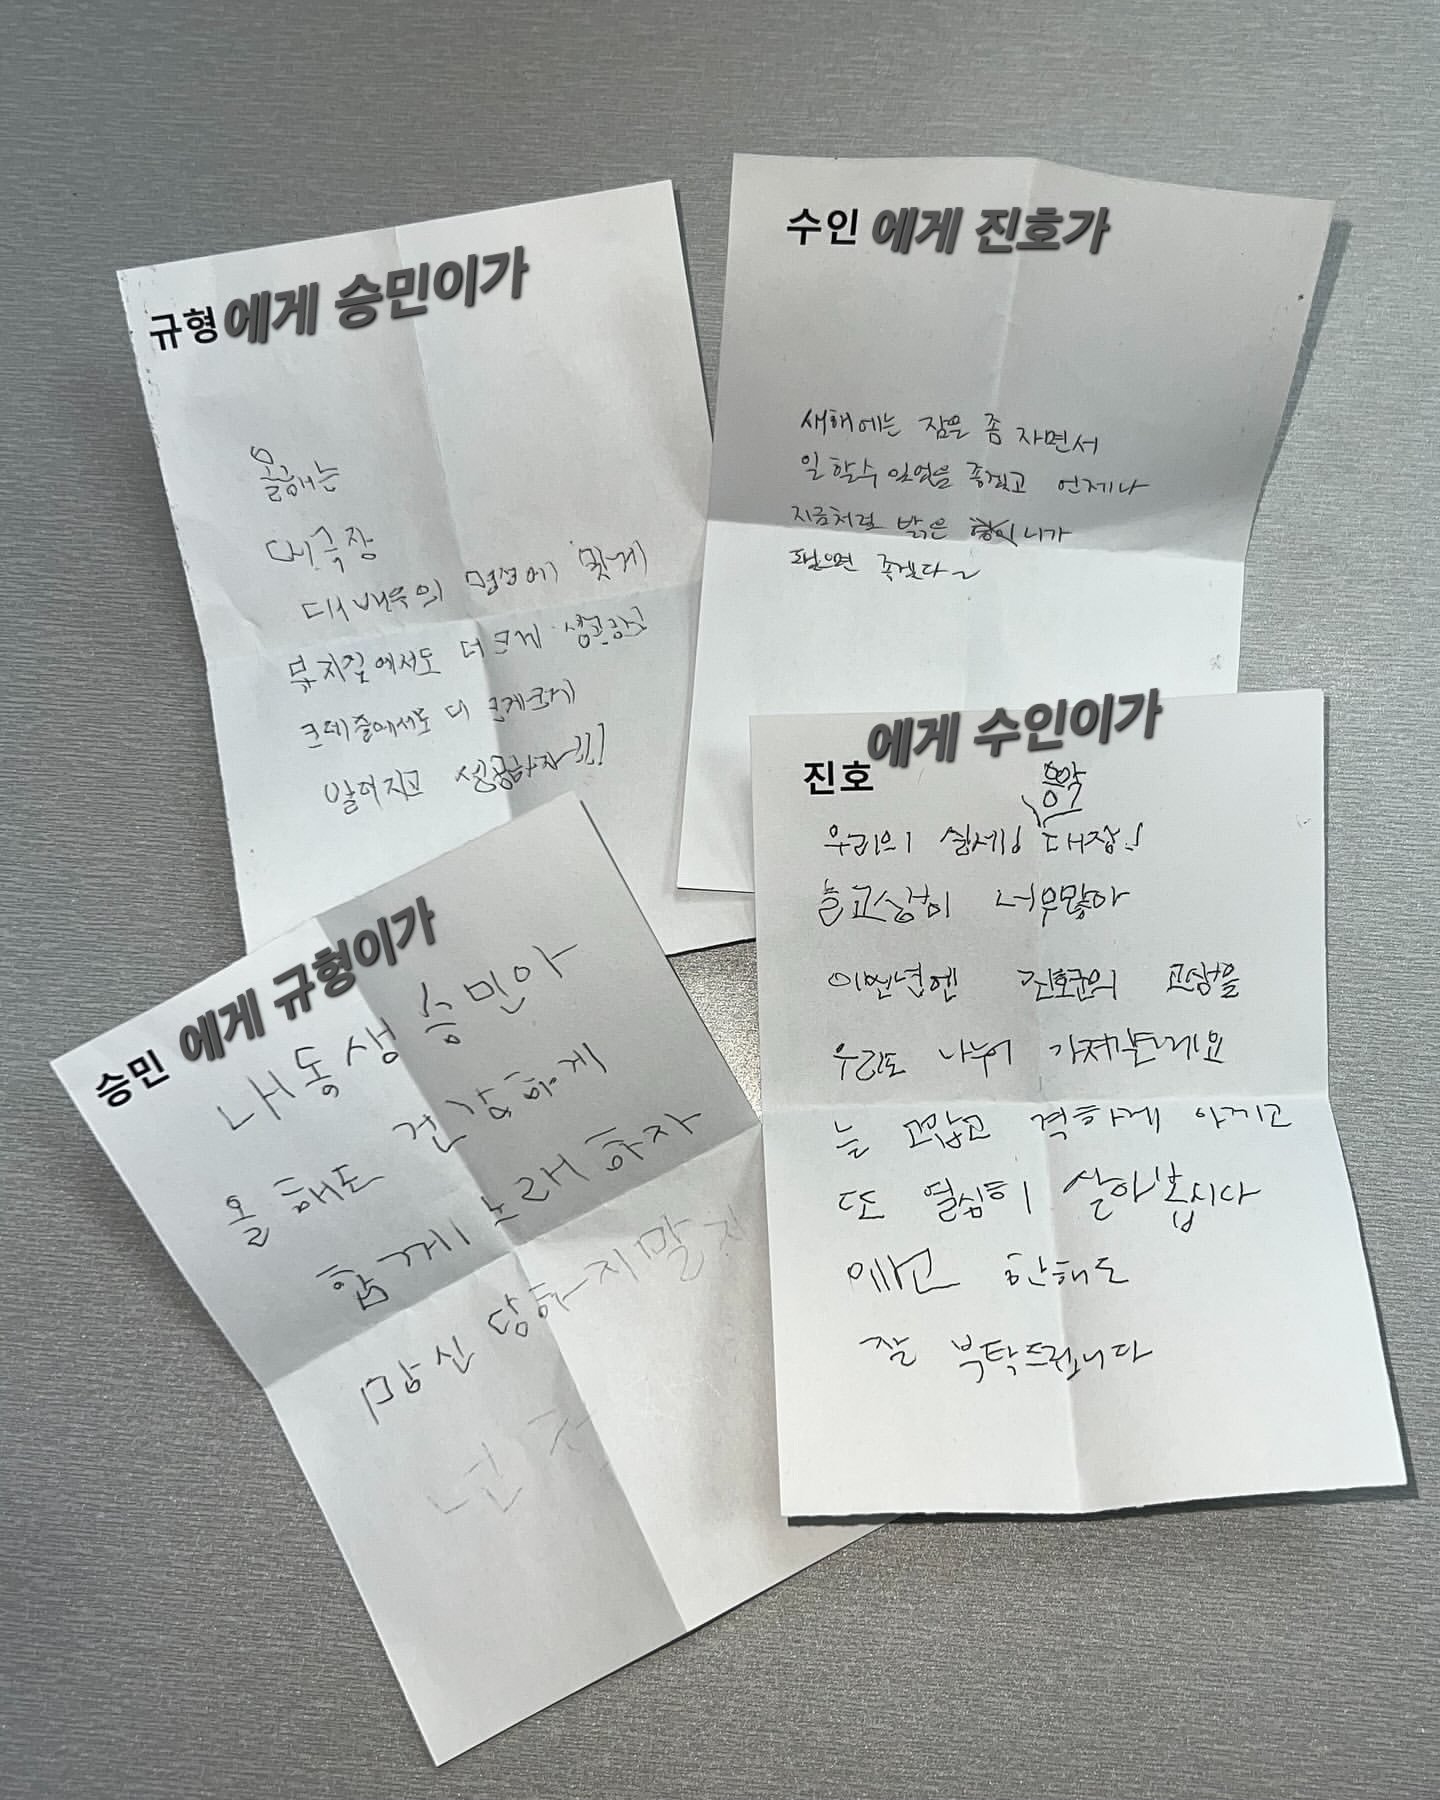 규형에게 승민이가
올해는
대극장
대배우의 명성에 맞게
뮤지컬에서도 더 크게 성공하고
크레즐에서도 더 크게크게
알려지고 성공하자!!!
수인에게 진호가
새해에는 잠을 좀 자면서
일 할수 있었음 좋겠고 언제나
지금처럼 밝은 니가
됐으면 좋겠다~
승민에게 규형이가
내 동생 승민아
올해도 건강하게
함께 노래하자
망신 당하지 말자
넌
진호에게 수인이가
음악
우리의 실세 대장!
늘 고생이 너무많아
이번년엔 진호군의 고생을
우리도 나누어 가져볼래요
늘 고맙고 격하게 아끼고
또 열심히 살아봅시다
한해도
잘 부탁드립니다